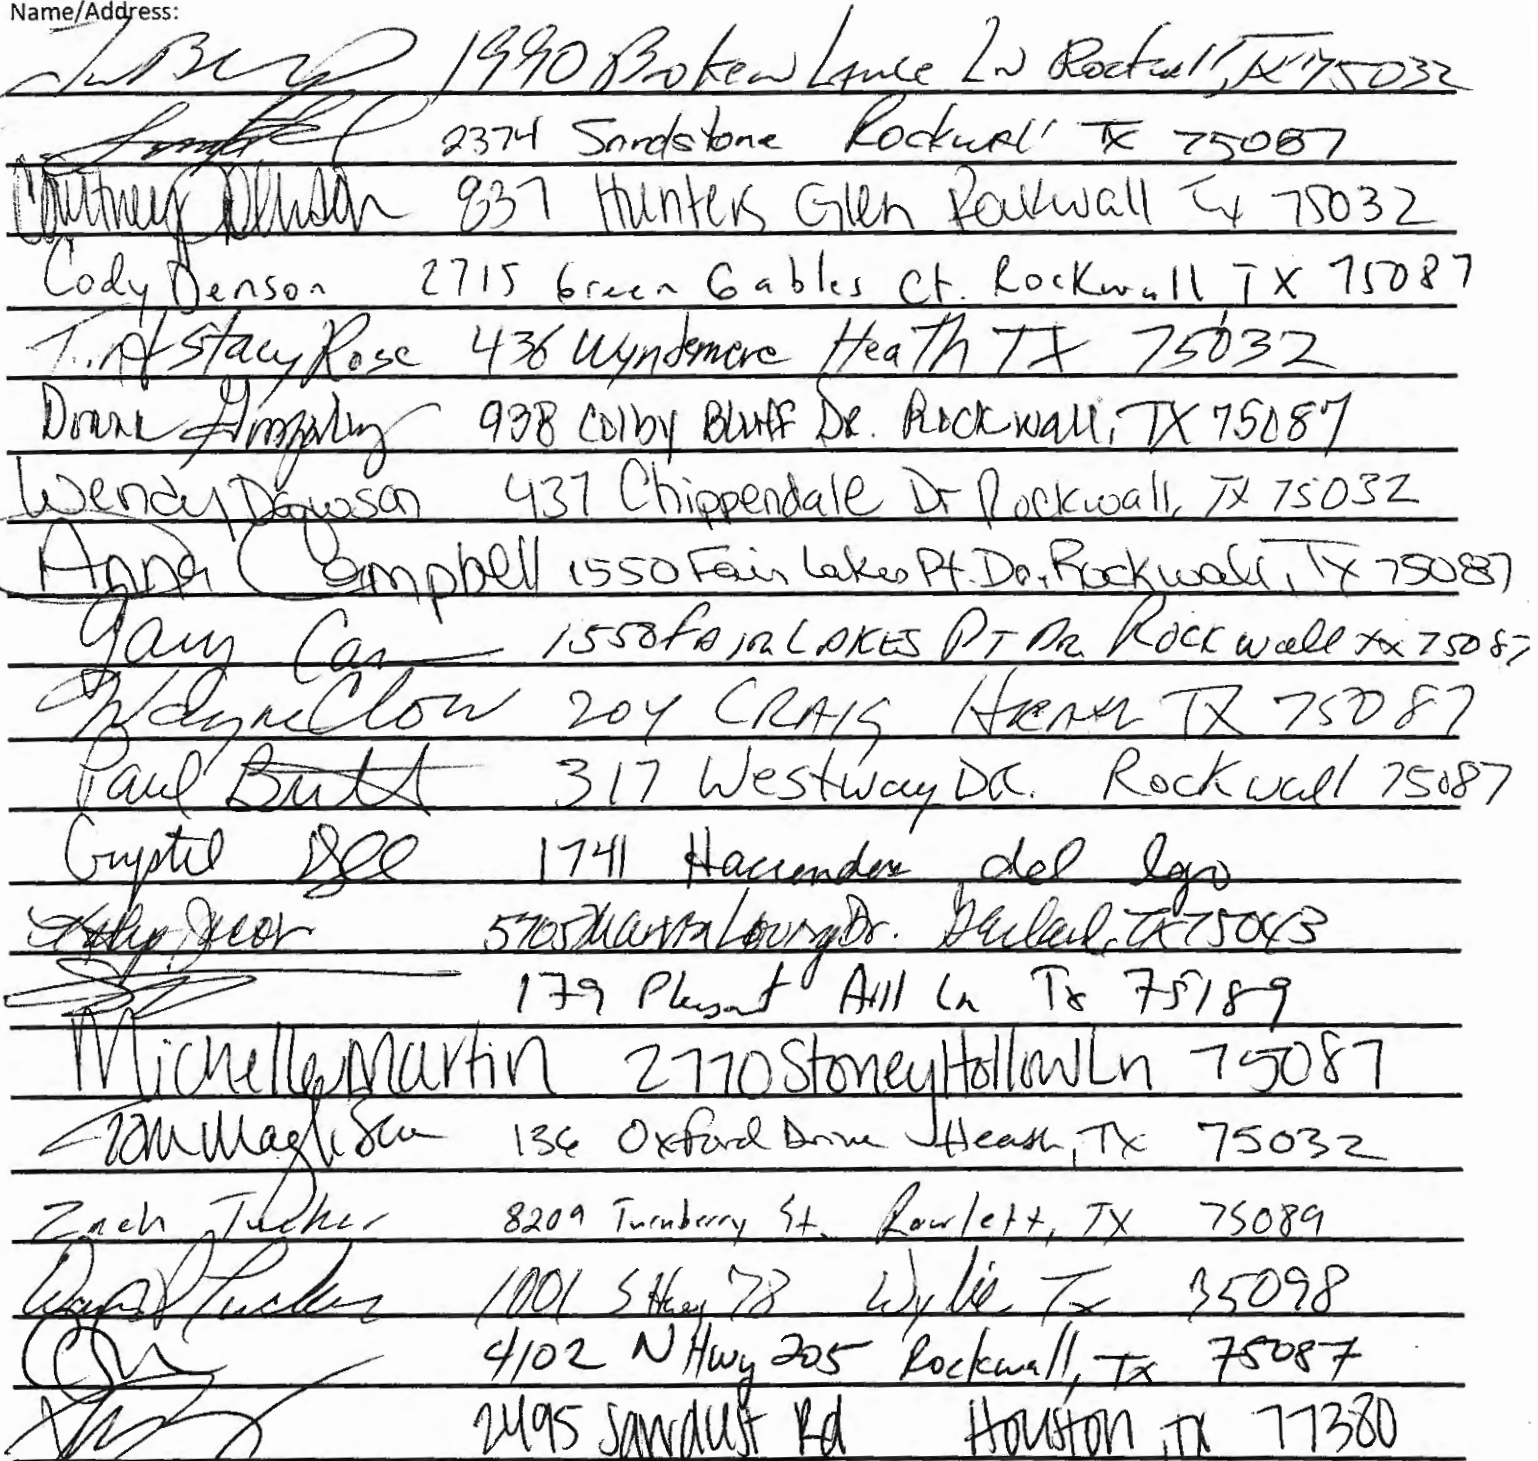 Name/Address:
1990 Broken Lance Ln Rockwall, TX 75032
2374 Sandstone Rockwall TX 75087
Courtney Denson 837 Hunters Glen Rockwall Tx 75032
Cody Denson 2715 Green Gables Ct. Rockwall TX 75087
Stacy Rose 436 Wyndemere Heath TX 75032
938 Colby Bluff Dr. Rockwall, TX 75087
Wendy Dawson 437 Chippendale Dr Rockwall, TX 75032
Anna Campbell 1550 Fair Lakes Pt. Dr. Rockwall, TX 75087
Gary 1550 FAIR LAKES PT DR Rockwall TX 75087
Wayne Clow 204 CRAIG TX 75087
Paul 317 Westway DR. Rockwall 75087
1741 Hacienda del lago
5705 Dr. Garland, TX 75043
179 Pleasant Hill Ln Tx 75189
Michelle Martin 2770 Stoney Hollow Ln 75087
136 Oxford Drive Heath, TX 75032
Zach Tucker 8209 Turnberry St. Rowlett, TX 75089
Tucker 1001 S Hwy 78 Wylie Tx
4102 N Hwy 205 Rockwall, TX 75087
2495 Sawdust Rd Houston, TX 77380